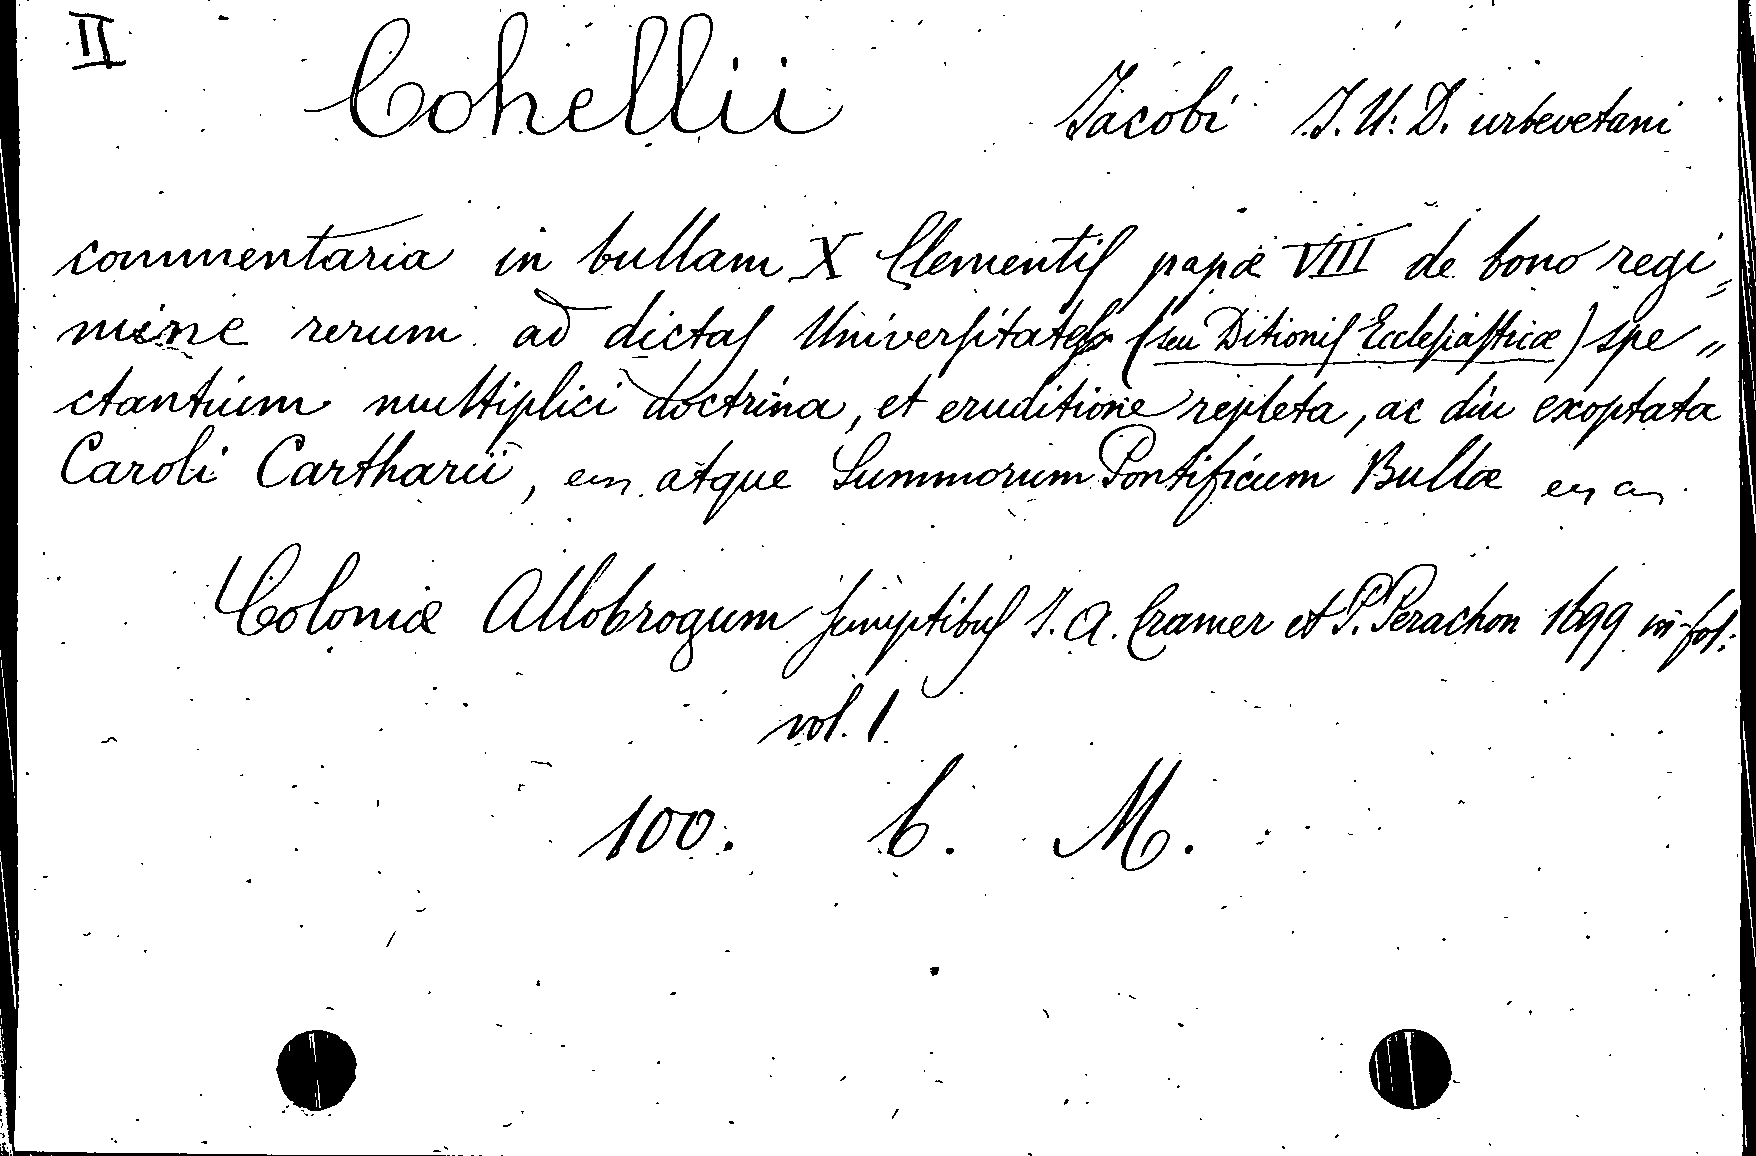 II
Cohellii Jacobi J. U. D. urbevetani
commentaria in bullam X Clementis papæ VIII de bono regi=
mine rerum ad dictas Universitates (seu Ditionis Ecclesiasticæ) spe„
ctantium multiplici doctrina, et eruditione repleta, ac diu exoptata
Caroli Cartharii, atque Summorum Pontificum Bullæ
Coloniæ Allobrogum sumptibus J. A. Cramer et P. Perachon 1699 in-fol:
vol. 1.
100. C. M.